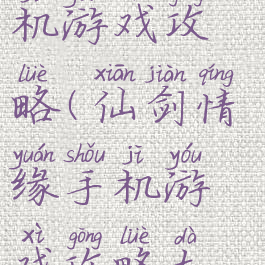 机游戏攻
lüè xiān jiàn qíng
略(仙剑情
yuán shǒu jī yóu
缘手机游
xì gōng lüè dà
戏攻略大